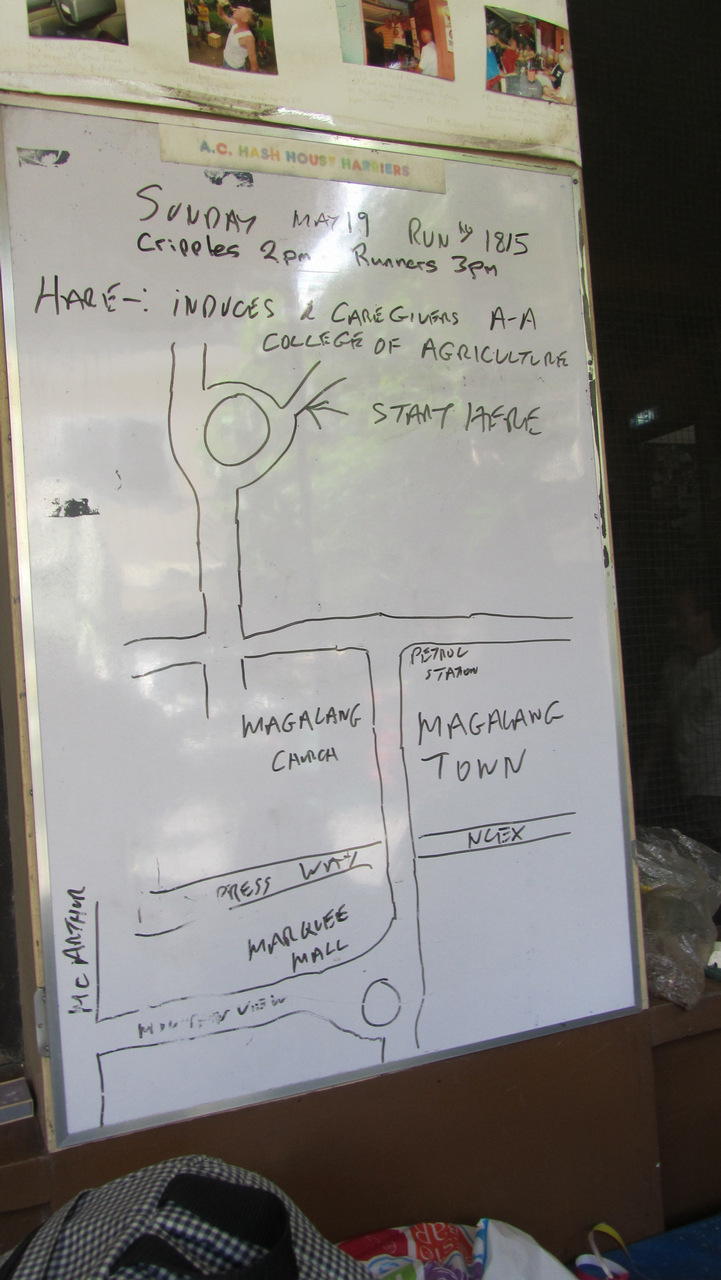 A.C. HASH HOUSE HARRIERS
SUNDAY MAY 19 RUN No 1815
Cripples 2pm Runners 3pm
HARE-: INDUCES & CAREGIVERS A-A
COLLEGE OF AGRICULTURE
START HERE
PETROL
STATION
MAGALANG
CHURCH
MAGALANG
TOWN
NLEX
PRESS WAY
MARQUEE
MALL
MC ARTHUR
MOUNTAIN VIEW